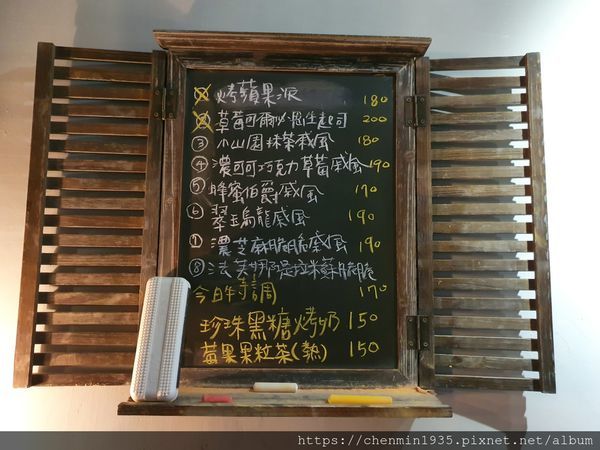 ① 烤蘋果派 180
② 草莓可爾必思生起司 200
③ 小山園抹茶戚風 180
④ 濃可可巧克力草莓戚風 190
⑤ 蜂蜜伯爵戚風 170
⑥ 翠玉烏龍戚風 190
⑦ 濃芝麻脆脆戚風 190
⑧ 法芙娜阿是拉米蘇脆脆
今日特調 170
珍珠黑糖烤奶 150
莓果果粒茶(熱) 150
https://chenmin1935.pixnet.net/album